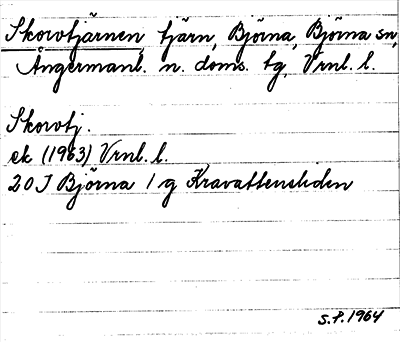 Skorvtjärnen, tjärn, Björna, Björna sn,
Ångermanl. n. doms. tg, Vrnl. l.
Skorvtj.
ek (1963) Vrnl. l.
20 J Björna 1 g Kravattensliden
S.P. 1964